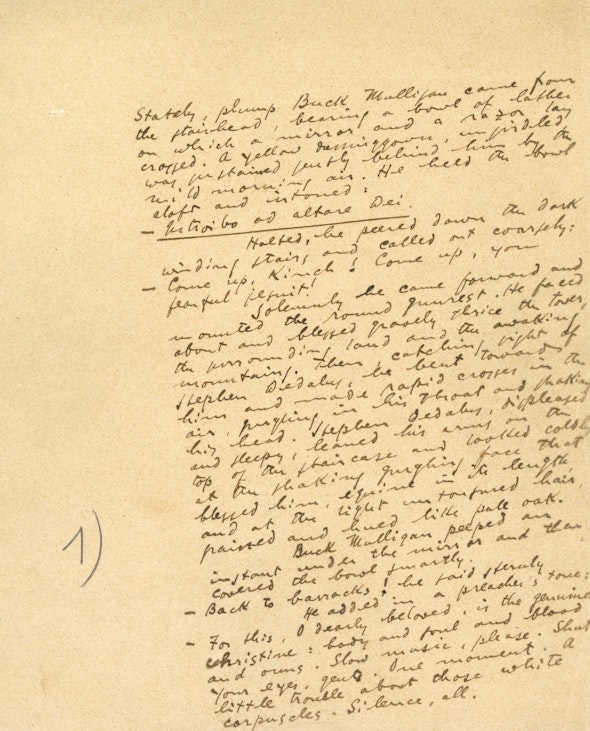 Stately, plump Buck Mulligan came from
the stairhead, bearing a bowl of lather
on which a mirror and a razor lay
crossed. A yellow dressinggown, ungirdled
was sustained gently behind him by the
mild morning air. He held the bowl
aloft and intoned:
– Introibo ad altare Dei.
Halted, he peered down the dark
winding stairs and called out coarsely:
– Come up, Kinch! Come up, you
fearful jesuit!
Solemnly he came forward and
mounted the round gunrest. He faced
about and blessed gravely thrice the tower,
the surrounding land and the awaking
mountains. Then, catching sight of
Stephen Dedalus, he bent towards
him and made rapid crosses in the
air, gurgling in his throat and shaking
his head. Stephen Dedalus, displeased
and sleepy, leaned his arms on the
top of the staircase and looked coldly
at the shaking gurgling face that
blessed him, equine in its length,
and at the light untonsured hair,
grained and hued like pale oak.
Buck Mulligan peeped an
instant under the mirror and then
covered the bowl smartly.
– Back to barracks! he said sternly
He added in a preacher's tone:
– For this, O dearly beloved, is the genuine
christine: body and soul and blood
and ouns. Slow music, please. Shut
your eyes, gents. One moment. A
little trouble about those white
corpuscles. Silence, all.
1)